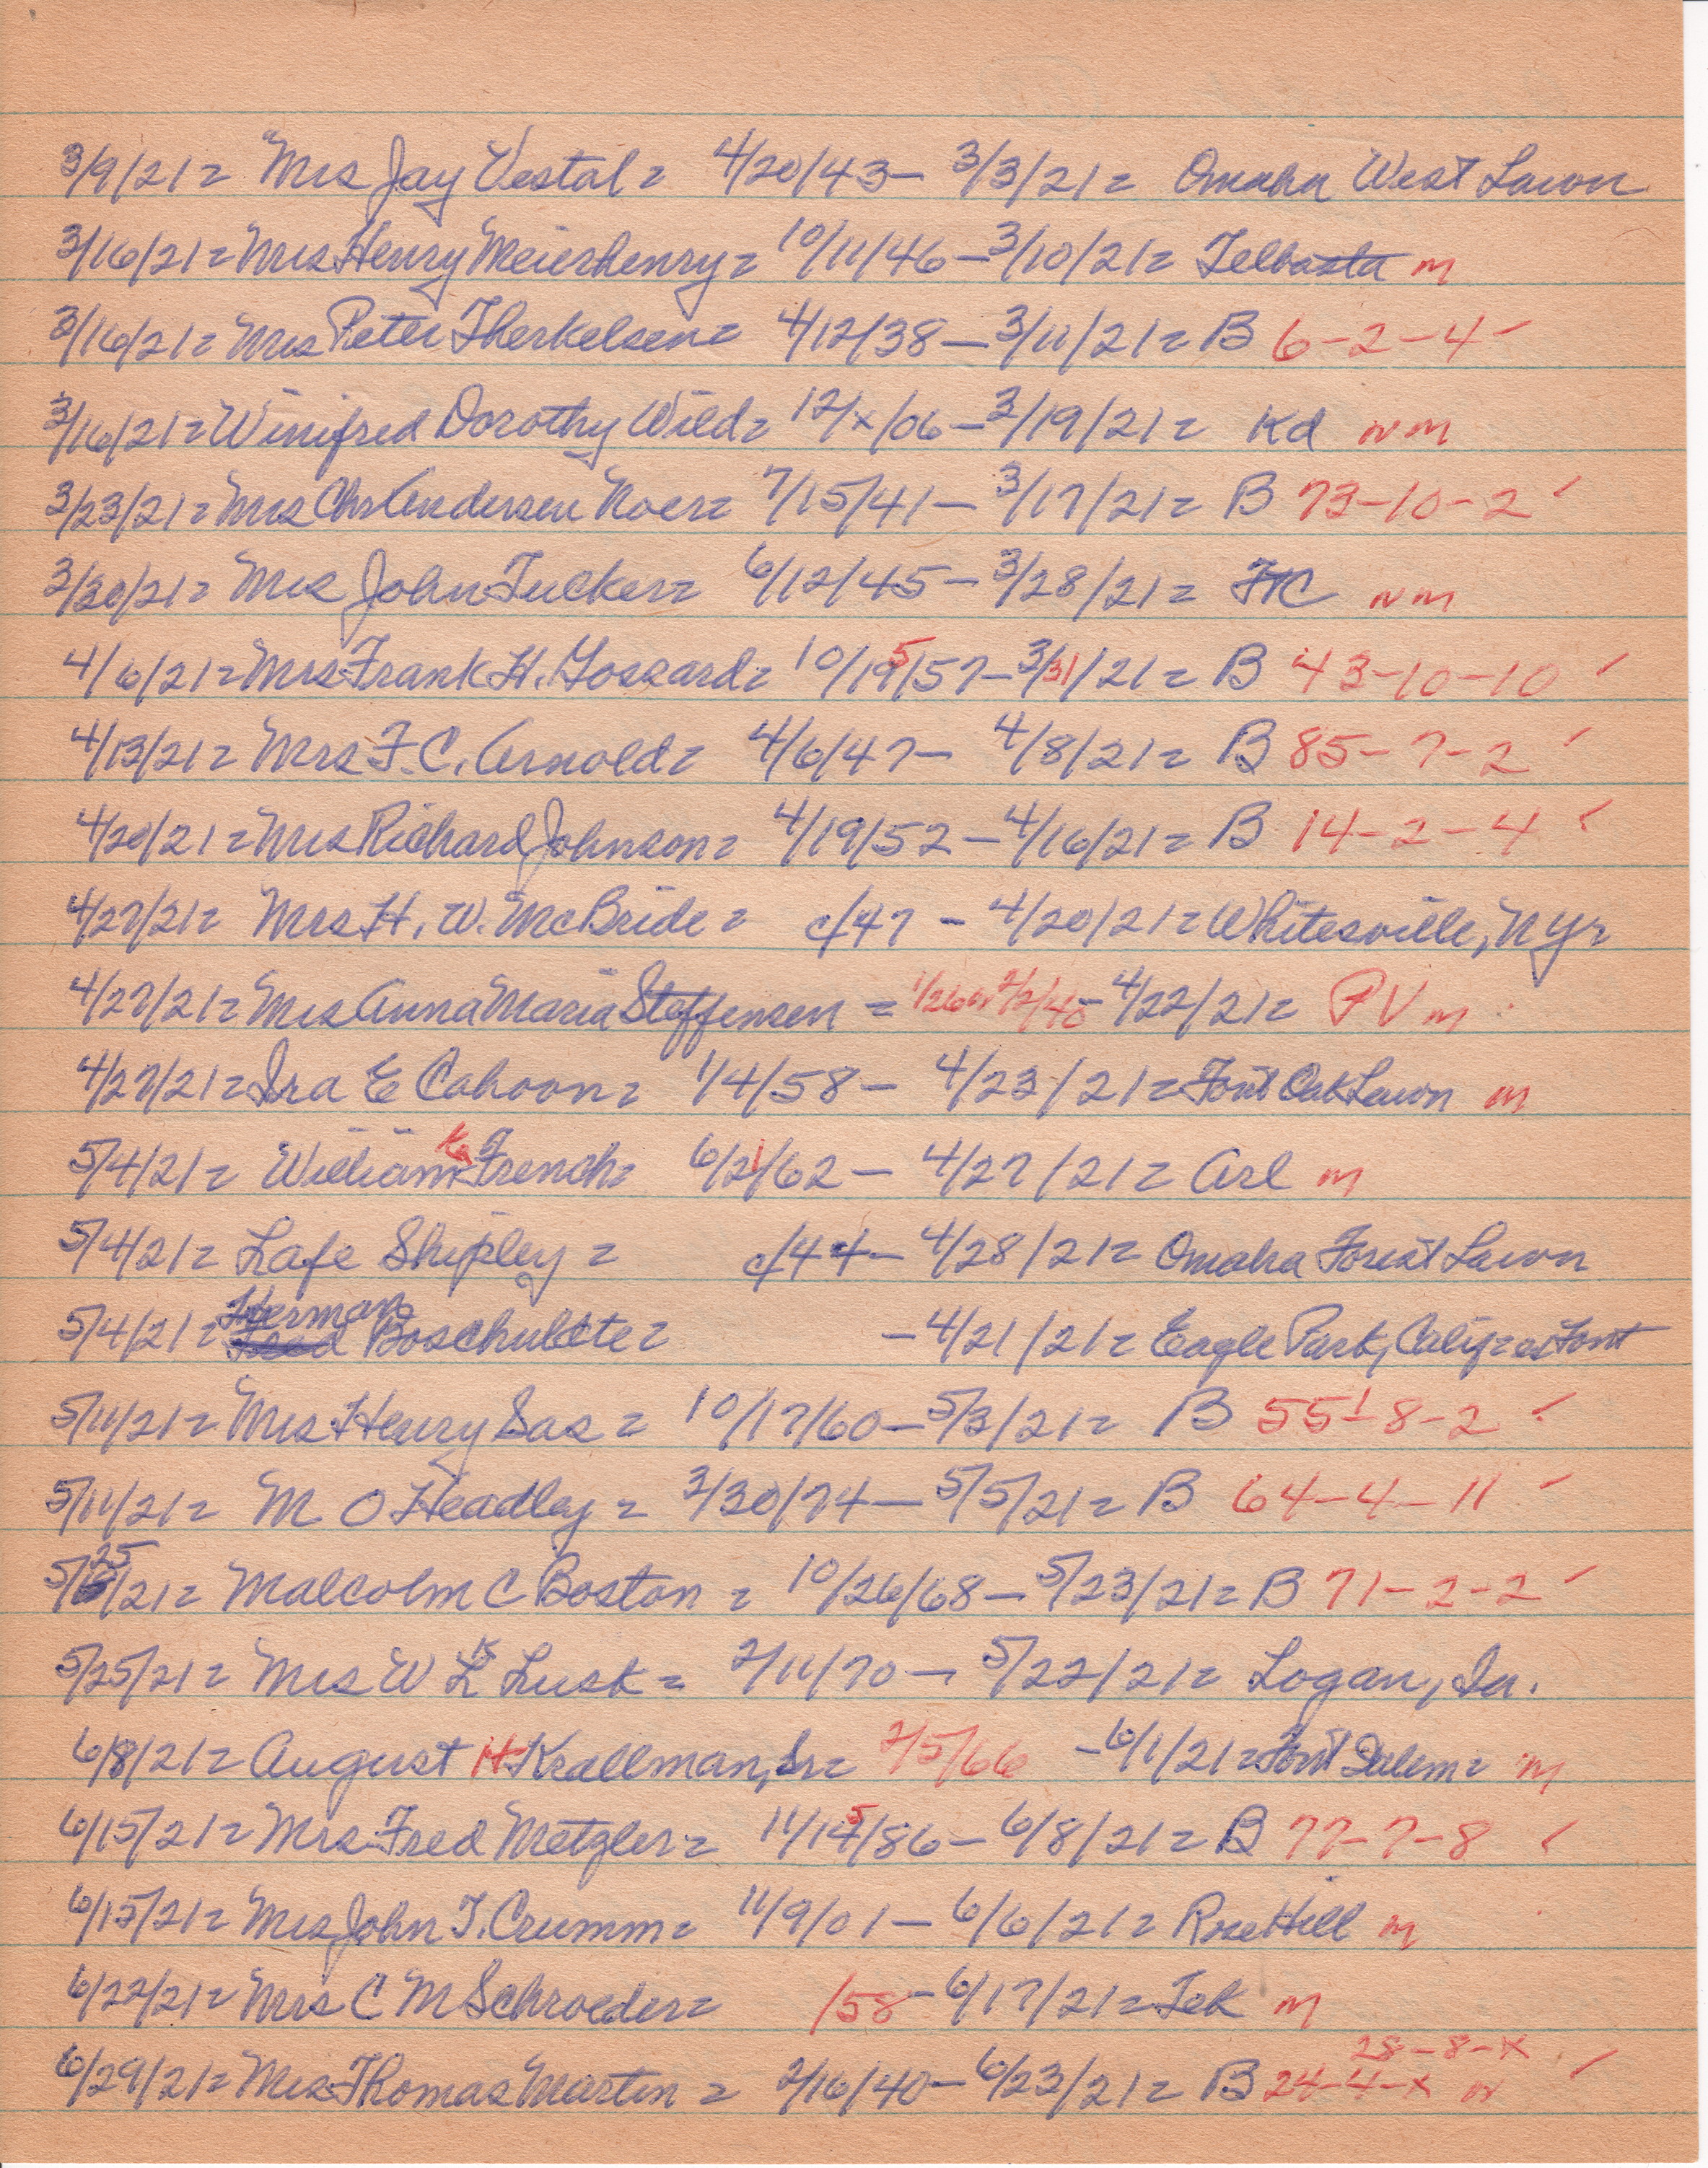 3/9/21= Mrs Jay Vestal= 4/20/43- 3/3/21= Omaha West Lawn
3/16/21= Mrs Henry Meierhenry= 10/11/46-3/10/21= Telbasta m
3/16/21= Mrs Peter Therkelsen= 4/12/38-3/11/21= B 6-2-4 ✓
3/16/21= Winifred Dorothy Wild= 12/x/06-3/19/21= Kd nm
3/23/21= Mrs Chr Andersen Noer= 7/15/41- 3/17/21= B 73-10-2 ✓
3/30/21= Mrs John Tucker= 6/12/45-3/28/21= nm
4/6/21= Mrs Frank H. Gossard= 10/19/57-3/31/21= B 43-10-10 ✓
4/13/21= Mrs F. C. Arnold= 4/6/47- 4/8/21= B 85-7-2 ✓
4/20/21= Mrs Richard Johnson= 4/19/52-4/16/21= B 14-2-4 ✓
4/27/21= Mrs H. W. McBride= c/47 - 4/20/21= Whitesville, NY=
4/27/21= Mrs Anna Maria Steffensen = 1/26 or 2/2/48-4/22/21= PV m
4/27/21= Ira E Cahoon= 1/4/58- 4/23/21= Font Oak Lawn m
5/4/21= William K French= 6/21/62- 4/27/21= Arl m
5/4/21= Lafe Shipley= c/44- 4/28/21= Omaha Forest Lawn
5/4/21= Herman Boschultte= -4/21/21= Eagle Park, Calif= at Font
5/11/21= Mrs Henry Sas= 10/17/60-5/3/21= B 55½-8-2 ✓
5/11/21= M O Headley= 3/30/74-5/5/21= B 64-4-11 ✓
5/25/21= Malcolm C Boston= 10/26/68-5/23/21= B 71-2-2 ✓
5/25/21= Mrs W K Lusk= 2/11/70- 5/22/21= Logan, Ia.
6/8/21= August H Krallman, Sr= 2/5/66 -6/1/21= Font Salem= m
6/15/21= Mrs Fred Metzler= 11/15/86-6/8/21= B 77-7-8 ✓
6/15/21= Mrs John T. Crumm= 11/9/01-6/6/21= Rose Hill m
6/22/21= Mrs C M Schroeder= /58-6/17/21= Tek m
28-8-x
6/29/21= Mrs Thomas Martin= 2/16/40-6/23/21= B 24-4-x n ✓